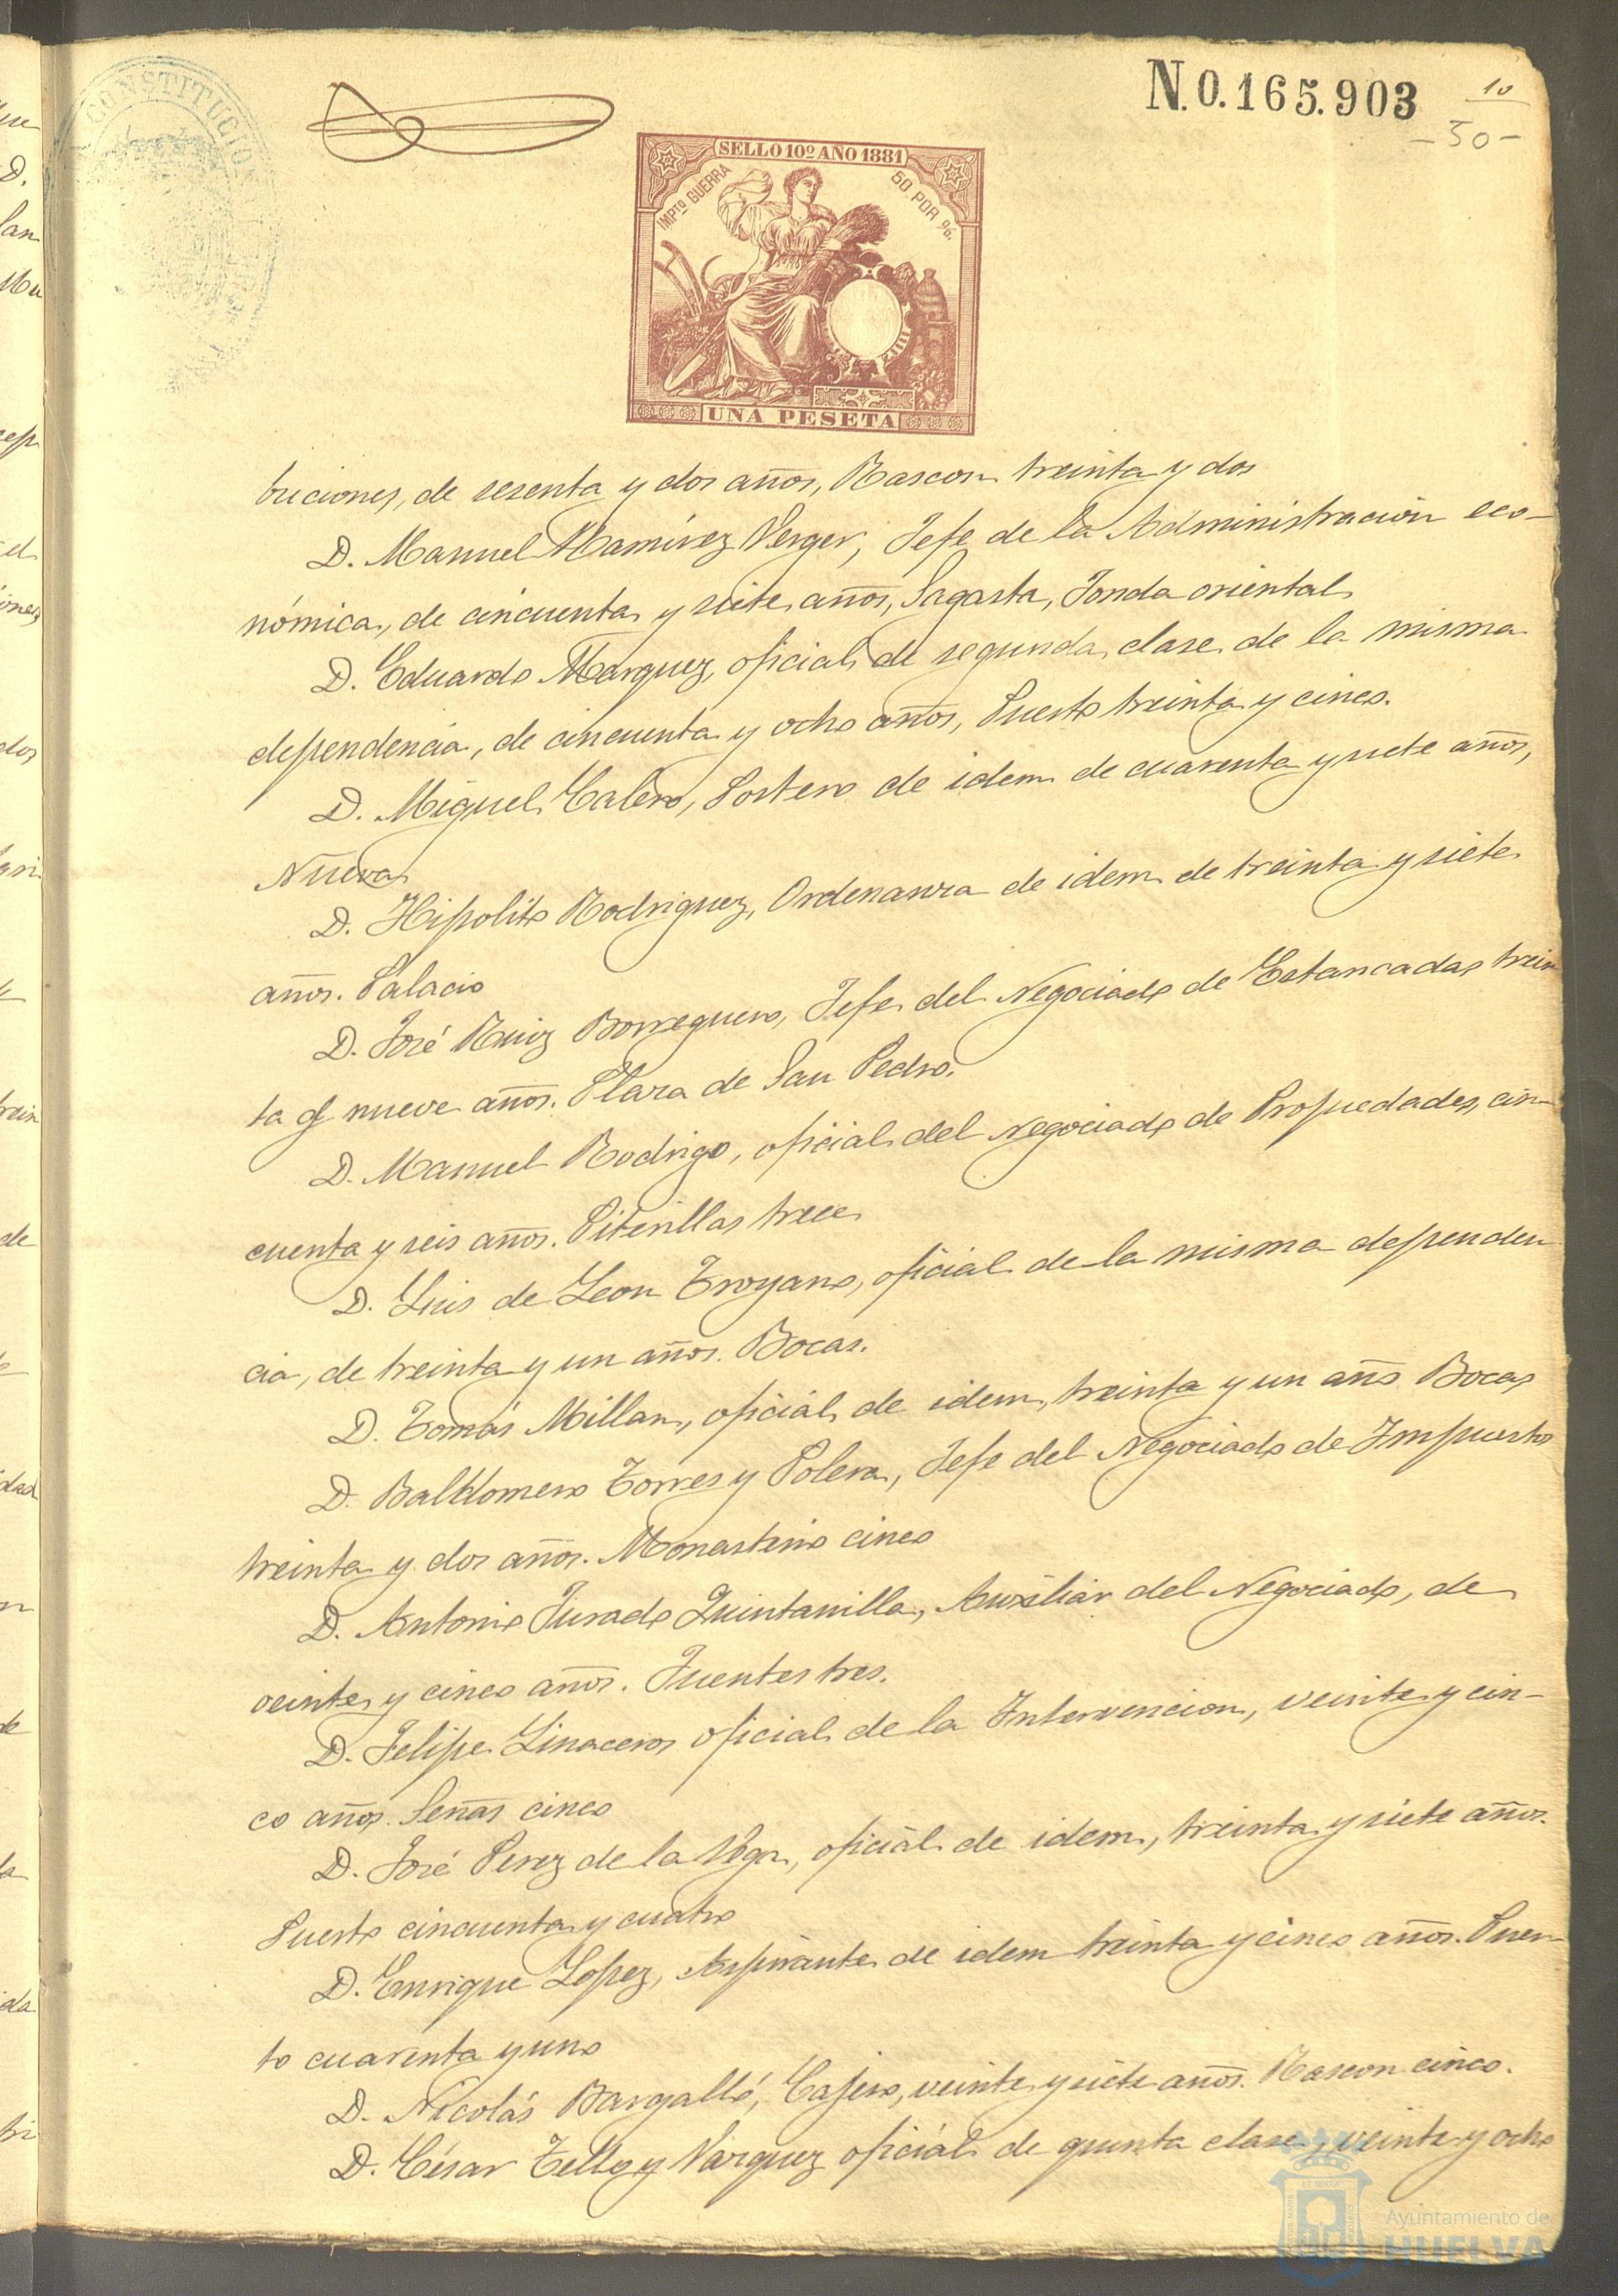 N.0.165.903
10
-30-
CONSTITUCION
SELLO 10º AÑO 1881
IMPTO GUERRA
50 POR %.
UNA PESETA
buciones, de sesenta y dos años, Rascon treinta y dos
D. Manuel Ramírez Verger, Jefe de la Administración eco-
nómica, de cincuenta y siete años, Sagasta, Fonda oriental
D. Eduardo Marquez, oficial de segunda clase de la misma
dependencia, de cincuenta y ocho años, Puerto treinta y cinco.
D. Miguel Calero, Portero de idem de cuarenta y siete años,
Nueva
D. Hipolito Rodriguez, Ordenanza de idem de treinta y siete
años. Palacio
D. José Ruiz Borreguero, Jefe del Negociado de Estancadas trein
ta y nueve años. Plaza de San Pedro.
D. Manuel Rodrigo, oficial del Negociado de Propiedades, cin-
cuenta y seis años. Piterillas trece
D. Luis de Leon Troyano, oficial de la misma dependen
cia, de treinta y un años. Bocas.
D. Tomás Millan, oficial de idem, treinta y un año Bocas
D. Baldomero Torres y Polera, Jefe del Negociado de Impuestos
treinta y dos años. Monasterio cinco
D. Antonio Jurado Quintanilla, Auxiliar del Negociado, de
veinte y cinco años. Fuentes tres.
D. Felipe Linaceros oficial de la Intervencion, veinte y cin-
co años. Señas cinco
D. José Perez de la Vega, oficial de idem, treinta y siete años.
Puerto cincuenta y cuatro
D. Enrique Lopez, Aspirante de idem treinta y cinco años. Puer-
to cuarenta y uno
D. Nicolás Bargalló, Cajero, veinte y siete años. Rascon cinco.
D. César Tello y Vazquez oficial de quinta clase, veinte y ocho
Ayuntamiento de
HUELVA